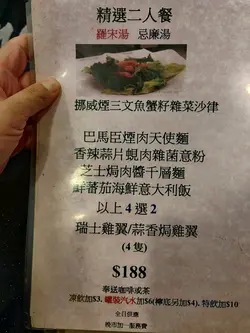 精選二人餐
羅宋湯 忌廉湯
挪威煙三文魚蟹籽雜菜沙律
巴馬臣煙肉天使麵
香辣蒜片蜆肉雜菌意粉
芝士焗肉醬千層麵
鮮蕃茄海鮮意大利飯
以上4選2
瑞士雞翼/蒜香焗雞翼
(4隻)
$188
奉送咖啡或茶
凍飲加$3. 罐裝汽水加$6(檸底另加$4). 特飲加$10
全日供應
晚市加一服務費